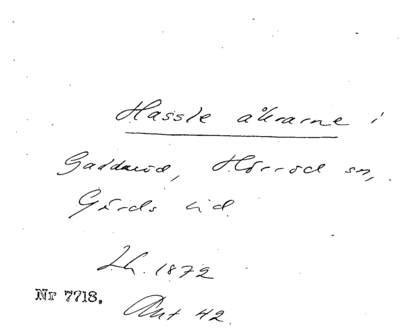 Hassle åkrarne i
Gaddaröd, Hörröd sn,
Gärds hd.
Lh. 1872
Nr 7718.
Ant 42